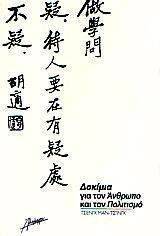 做學問
疑.待人要在有疑處
不疑.
胡適
Δοκίμια
για τον Άνθρωπο
και τον Πολιτισμό
ΤΣΕΝΓΚ ΜΑΝ-ΤΣΙΝΓΚ